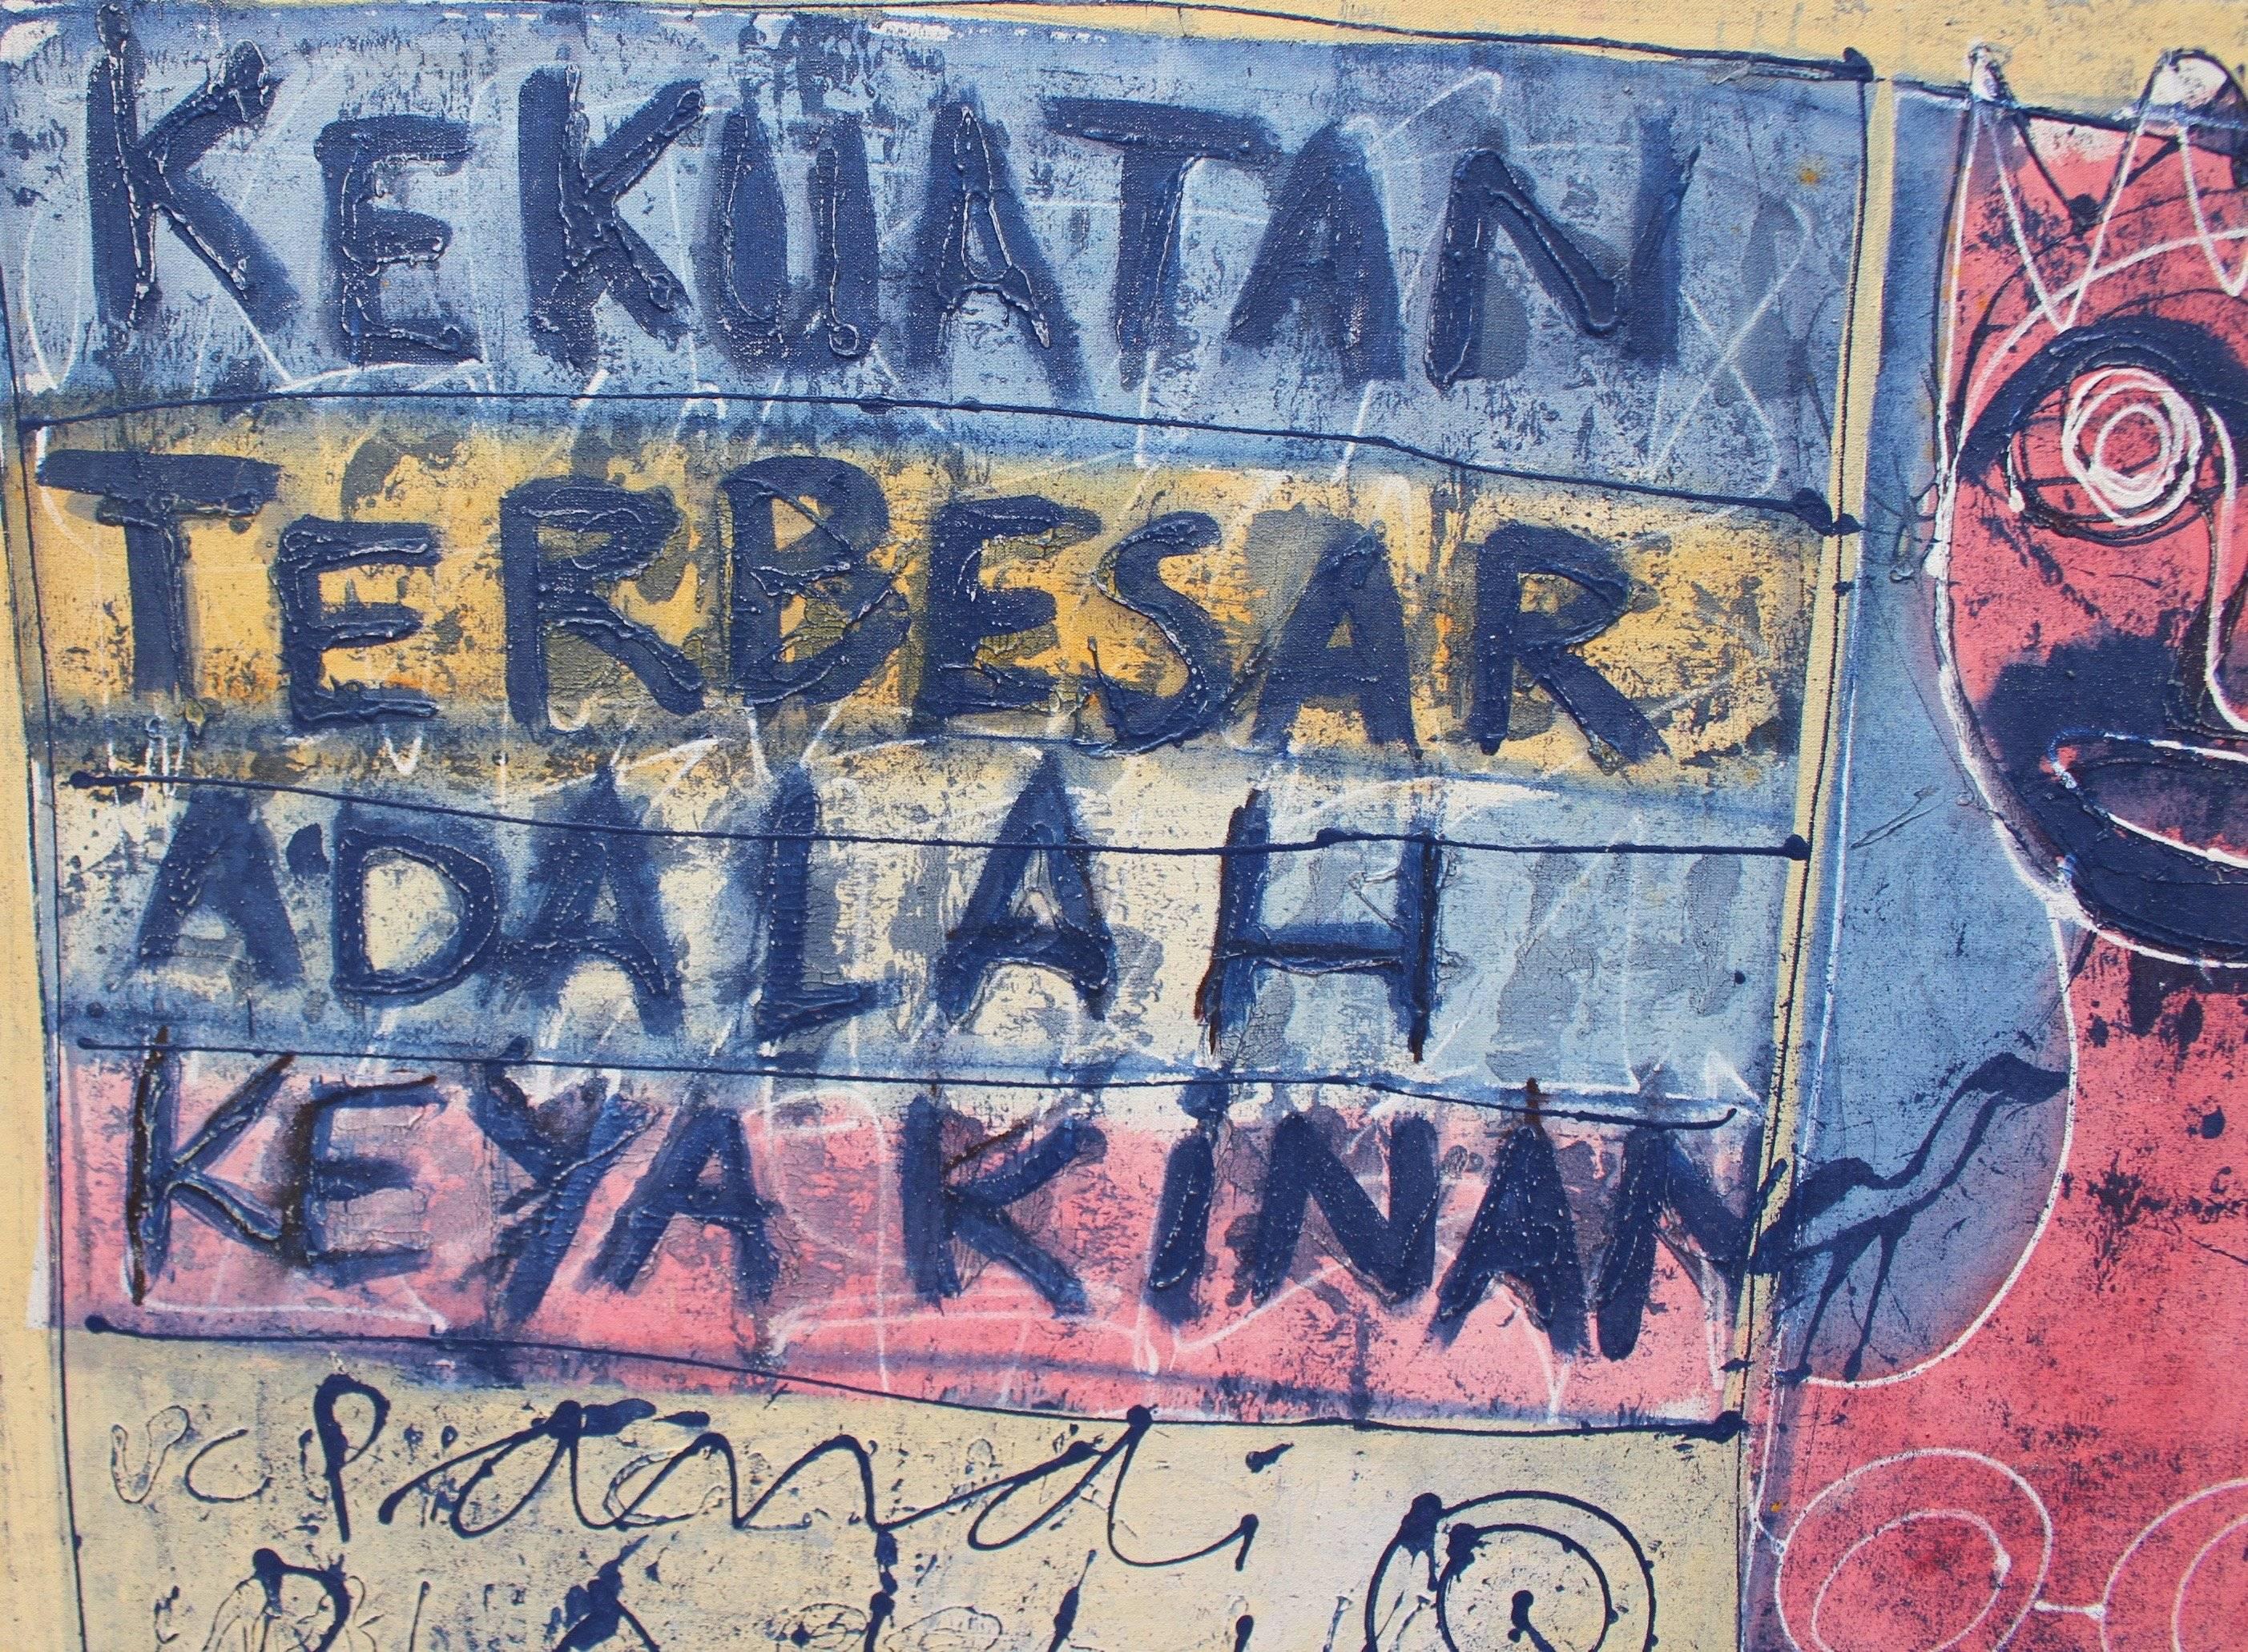 KEKUATAN
TERBESAR
ADALAH
KEYAKINAN
Pandi